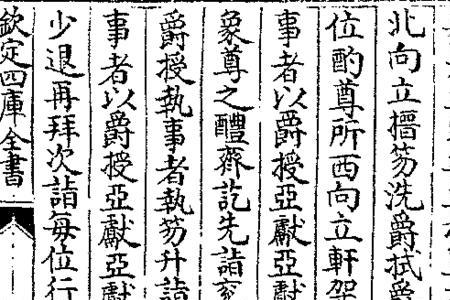 北向立搢笏洗爵拭爵
位酌尊所西向立軒架
事者以爵授亞獻亞獻
象尊之醴齊訖先詣
爵授執事者執笏升詣
事者以爵授亞獻亞獻
少退再拜次詣每位行
欽定四庫全書